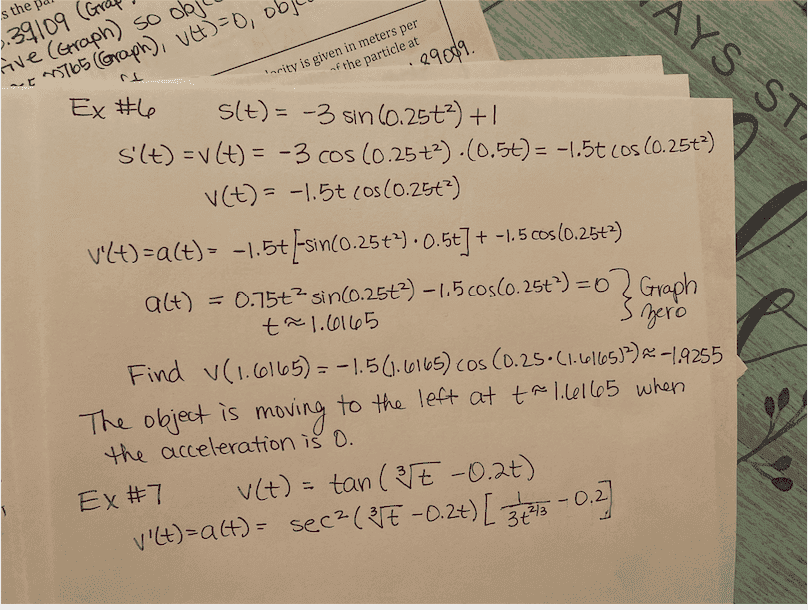 s the pa
.39109 (Grap
ive (Graph) so obj
(Graph), v(t)=0, obj
locity is given in meters per
of the particle at
.89099.
AYS ST
Ex #6 s(t) = -3 sin(0.25t²)+1
s'(t) = v(t) = -3 cos(0.25t²)·(0.5t) = -1.5t cos(0.25t²)
v(t) = -1.5t cos(0.25t²)
v'(t)=a(t)= -1.5t[-sin(0.25t²)·0.5t] + -1.5cos(0.25t²)
a(t) = 0.75t² sin(0.25t²) -1.5cos(0.25t²) = 0 } Graph
t≈1.6165 zero
Find v(1.6165) = -1.5(1.6165) cos(0.25·(1.6165)²)≈ -1.9255
The object is moving to the left at t≈1.6165 when
the acceleration is 0.
Ex #7 v(t) = tan(∛t -0.2t)
v'(t)=a(t)= sec²(∛t -0.2t)[1/3t^2/3 -0.2]